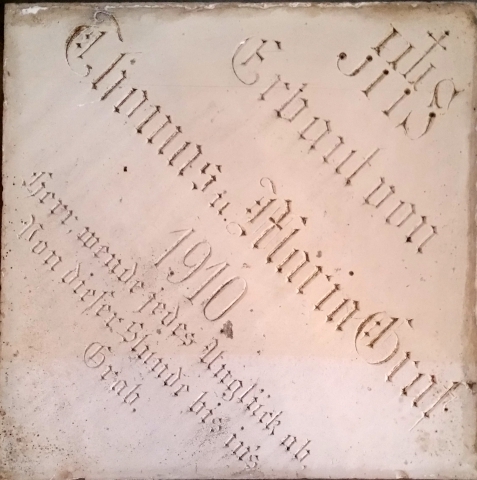 JHS
Erbaut von
Thomas u. Maria Graf
1910.
Herr wende jedes Unglück ab.
Von dieser Stunde bis in's
Grab.